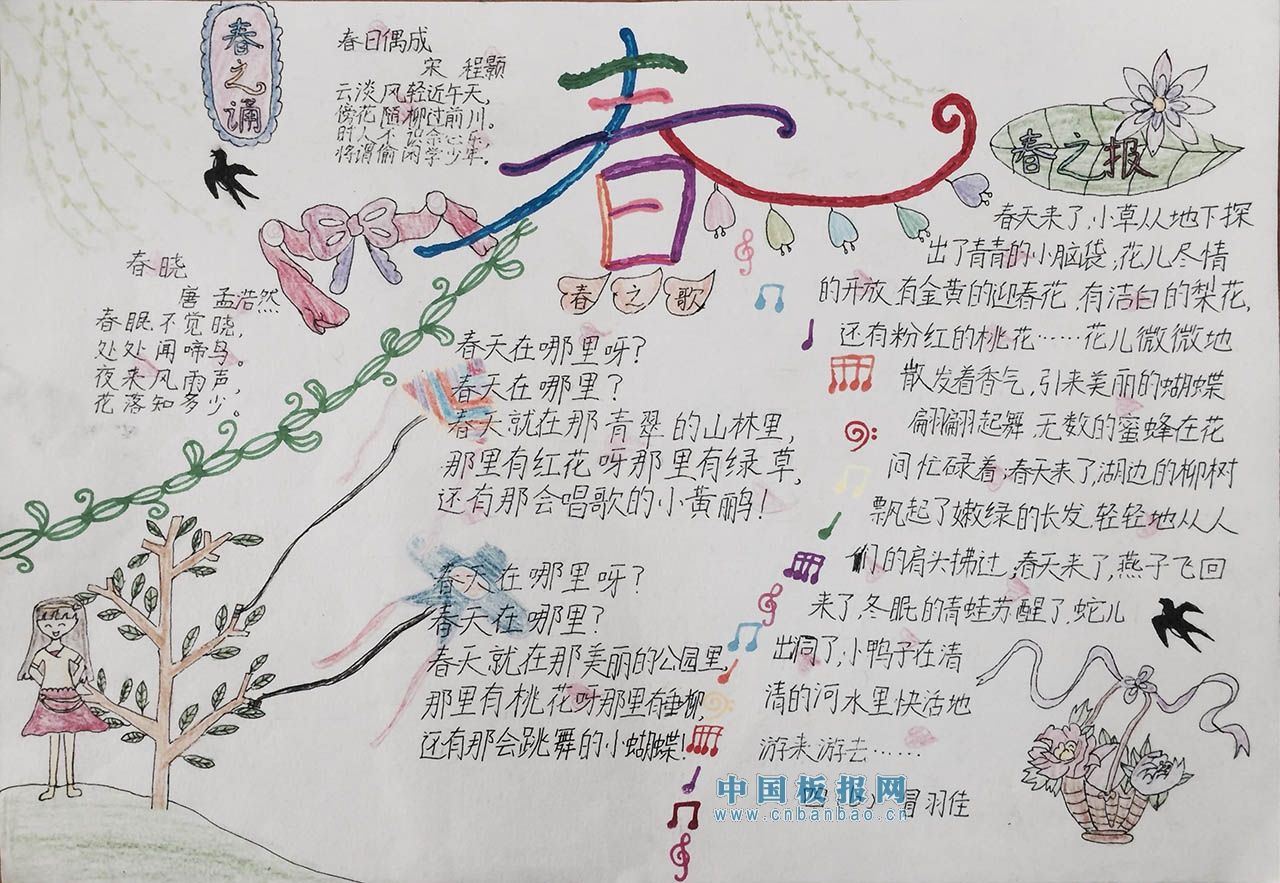 春之诵
春日偶成
宋 程颢
云淡风轻近午天，
傍花随柳过前川。
时人不识余心乐，
将谓偷闲学少年。
春
春晓
唐 孟浩然
春眠不觉晓，
处处闻啼鸟。
夜来风雨声，
花落知多少。
春之歌
春天在哪里呀？
春天在哪里？
春天就在那青翠的山林里，
那里有红花呀那里有绿草，
还有那会唱歌的小黄鹂！
春天在哪里呀？
春天在哪里？
春天就在那美丽的公园里，
那里有桃花呀那里有垂柳，
还有那会跳舞的小蝴蝶！
春之报
春天来了，小草从地下探
出了青青的小脑袋，花儿尽情
的开放，有金黄的迎春花，有洁白的梨花，
还有粉红的桃花……花儿微微地
散发着香气，引来美丽的蝴蝶
翩翩起舞，无数的蜜蜂在花
间忙碌着；春天来了，湖边的柳树
飘起了嫩绿的长发，轻轻地从人
们的肩头拂过，春天来了，燕子飞回
来了，冬眠的青蛙苏醒了，蛇儿
出洞了，小鸭子在清
清的河水里快活地
游来游去……
冒羽佳
中国板报网
www.cnbanbao.cn